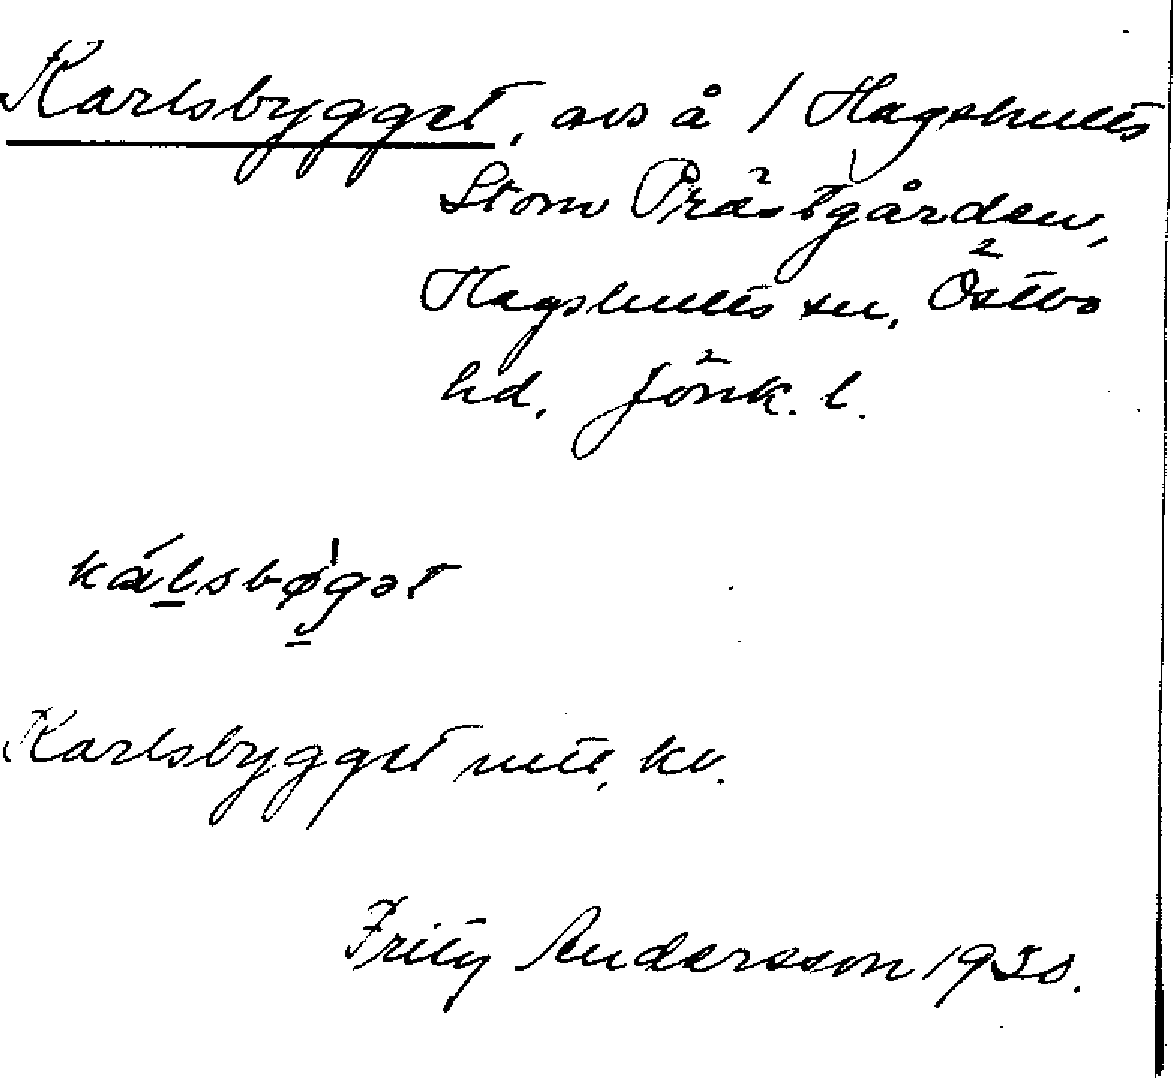 Karlsbygget, avs å 1 Hagshults
Stom Prästgården,
Hagshults sn, Östbo
hd, Jönk. l.
kálsbøgət
Karlsbygget utt, kv.
Fritz Andersson 1930.